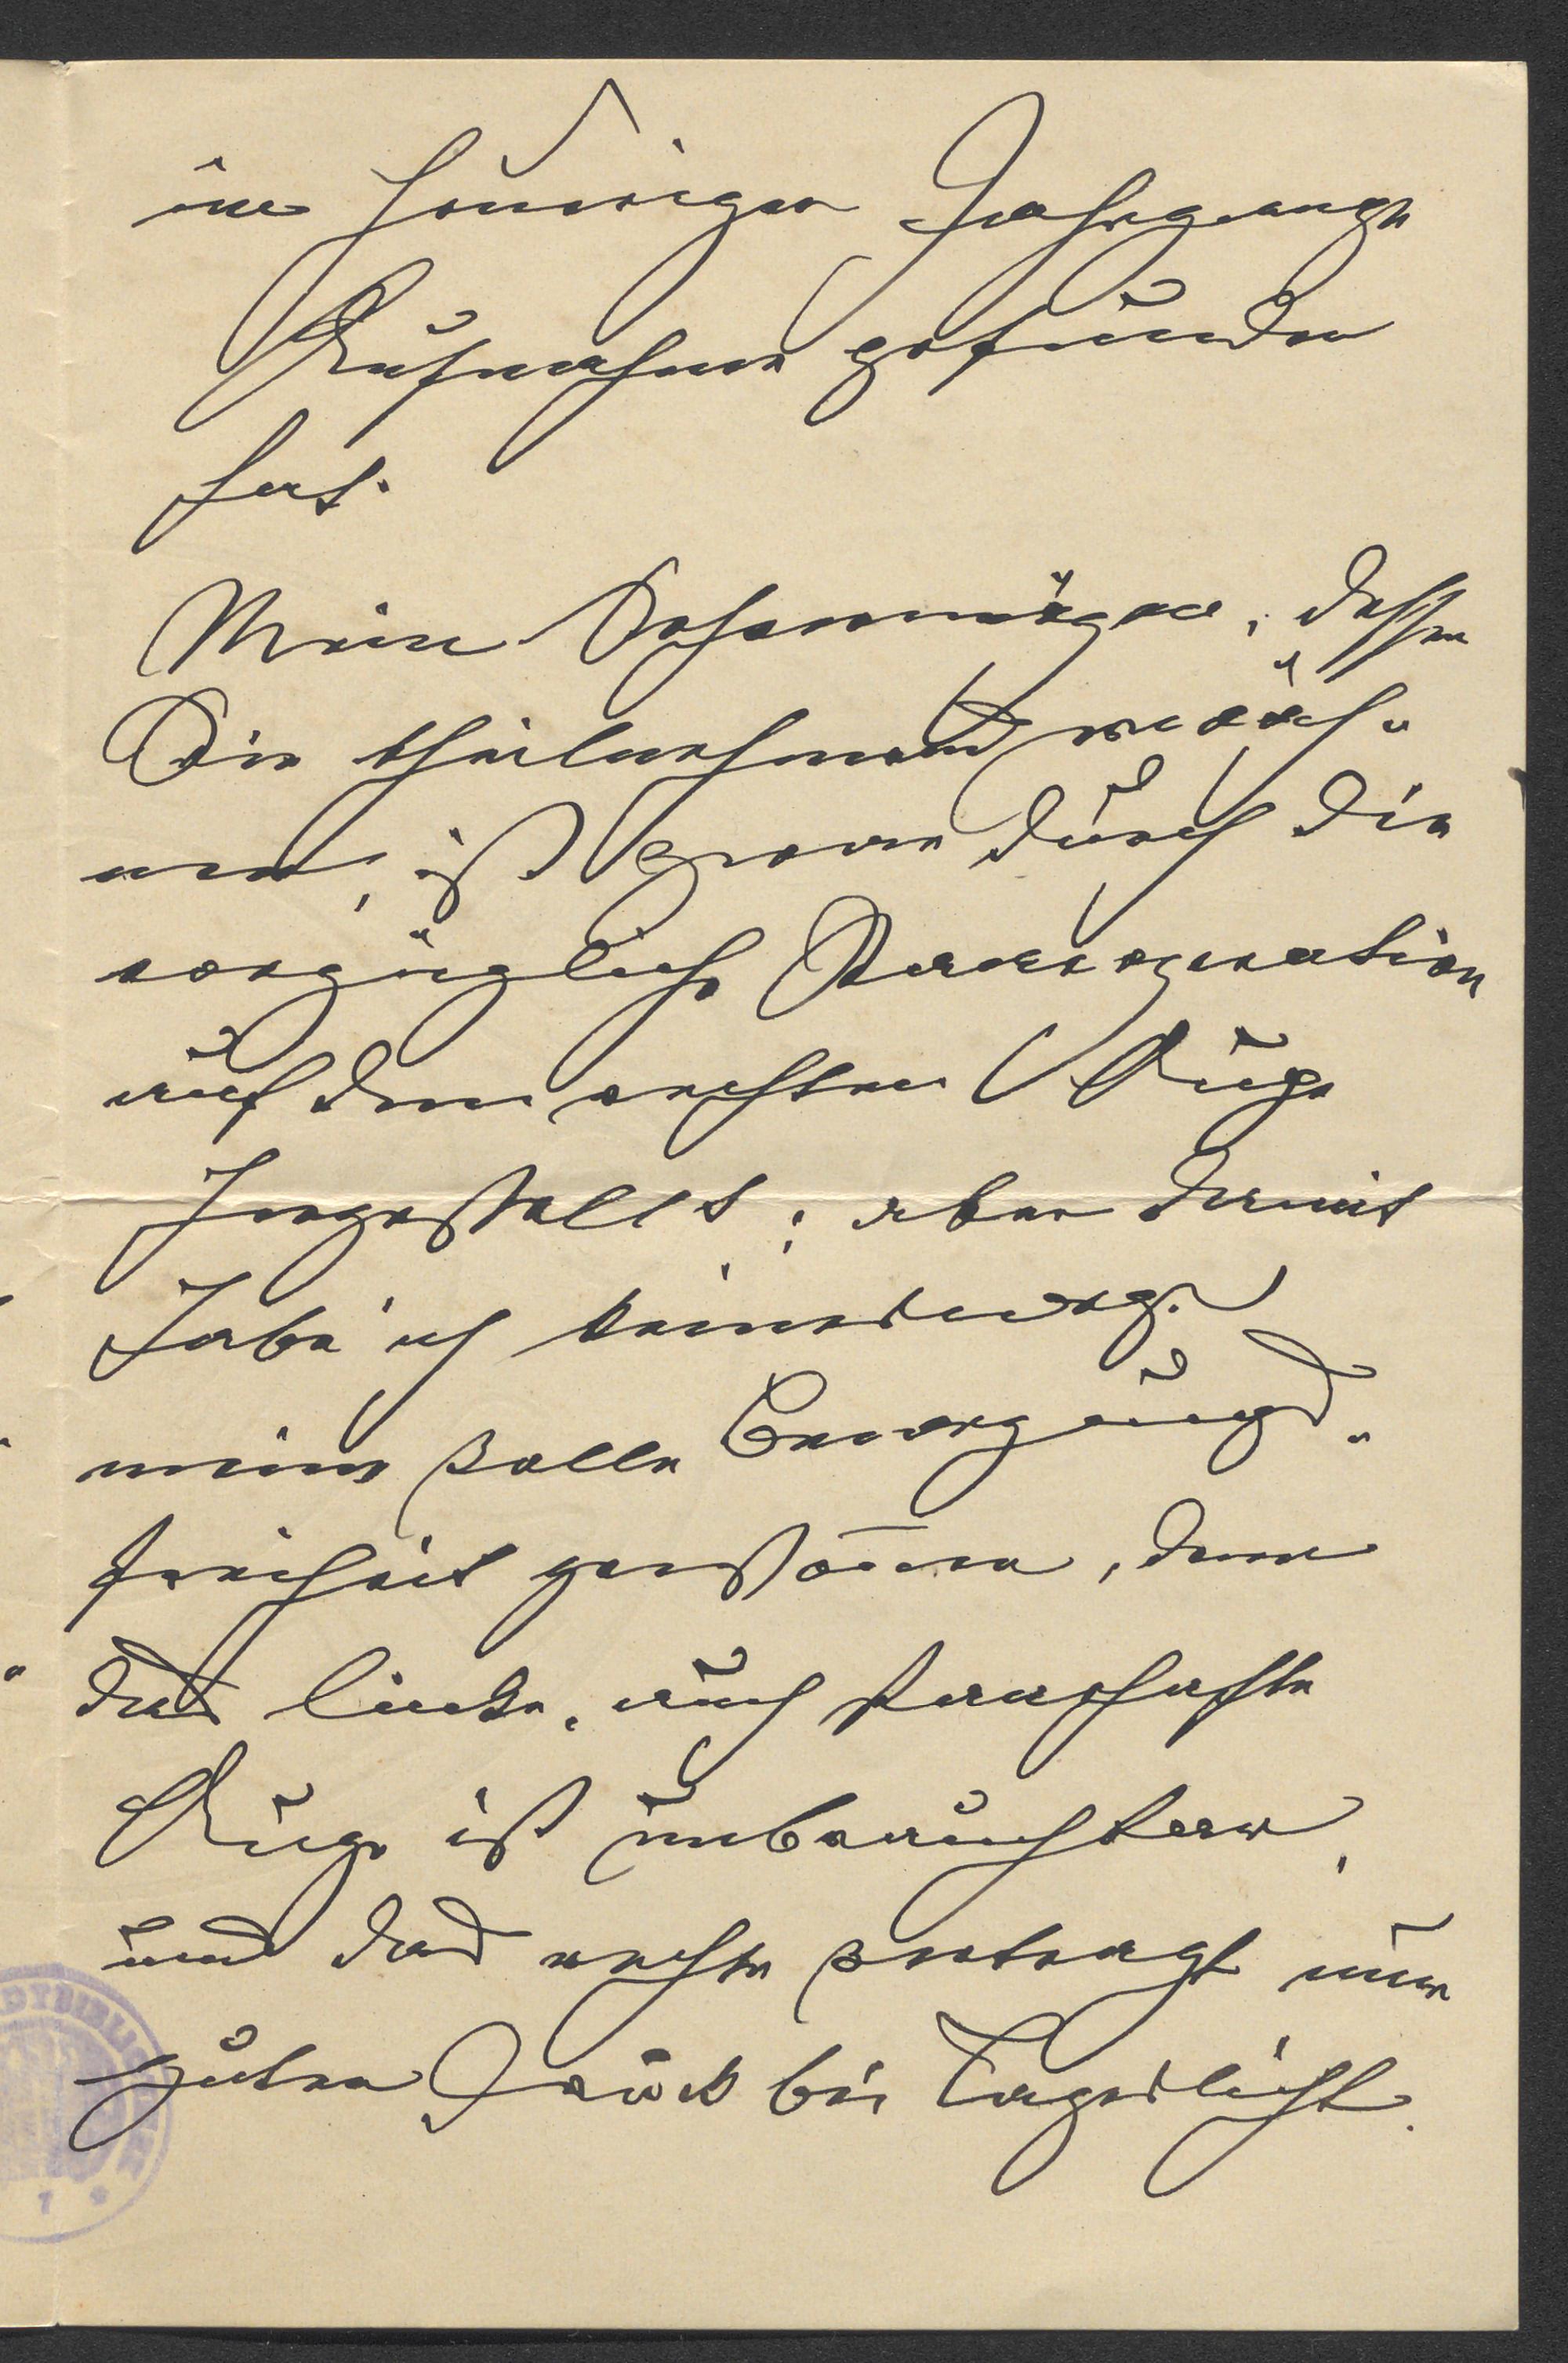 im heurigen Jahrgange
Aufnahme gefunden
hat.
Mein Sehvermögen, dessen
Sie theilnehmend erwäh-
nen, ist zwar durch die
vorzügliche Staaroperation
auf dem rechten Auge
hergestellt; aber damit
habe ich keineswegs
meine volle Bewegungs-
freiheit gewonnen, denn
das linke, auch staarhafte
Auge ist unbrauchbar,
und das rechte verträgt nur
guten Druck bei Tageslicht.